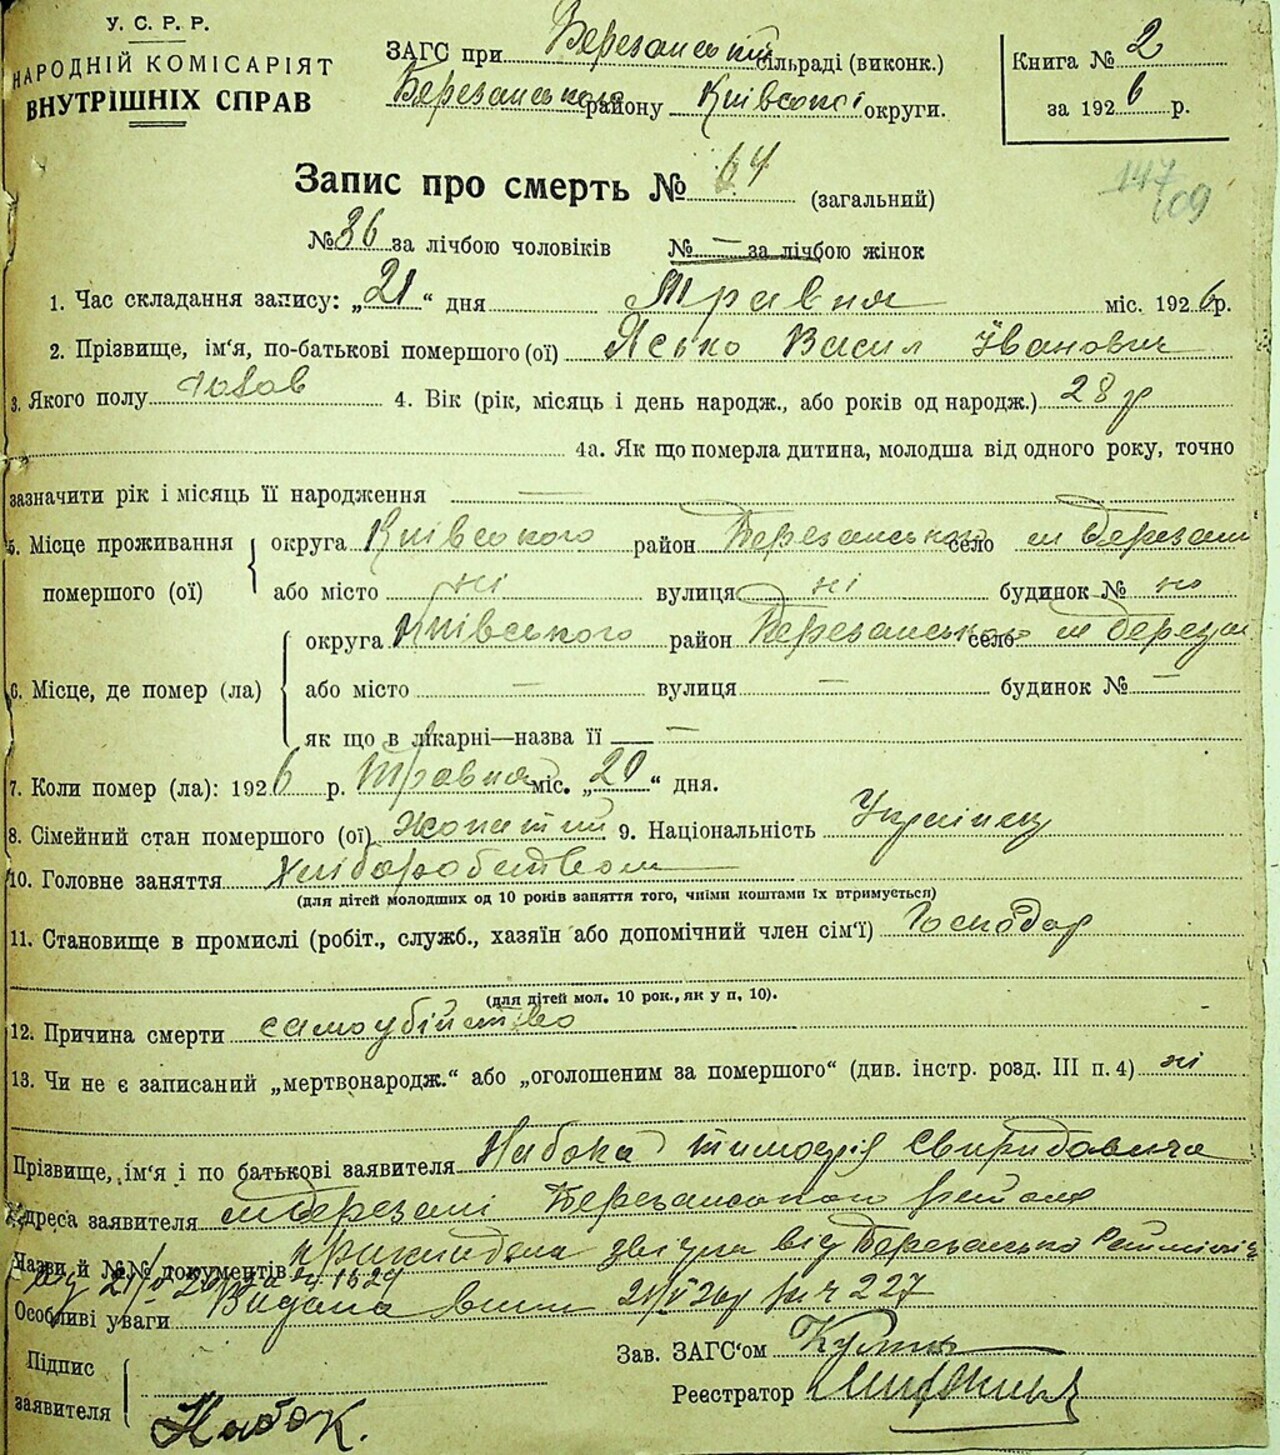 У. С. Р. Р.
НАРОДНІЙ КОМІСАРІЯТ
ВНУТРІШНІХ СПРАВ
ЗАГС при Березанській сільраді (виконк.)
Березанського району Київської округи.
Книга № 2
за 1926 р.
Запис про смерть № 64 (загальний)
147
109
№ 36 за лічбою чоловіків № — за лічбою жінок
1. Час складання запису: „21“ дня Травня міс. 1926 р.
2. Прізвище, ім‘я, по-батькові помершого (ої) Ясько Васил Іванович
3. Якого полу чолов 4. Вік (рік, місяць і день народж., або років од народж.) 28 р
4а. Як що померла дитина, молодша від одного року, точно
зазначити рік і місяць її народження —
5. Місце проживання помершого (ої) округа Київського район Березанського село м Березань
або місто ні вулиця ні будинок № ні
6. Місце, де помер (ла) округа Київського район Березанського село м Березань
або місто — вулиця — будинок № —
як що в лікарні—назва її —
7. Коли помер (ла): 1926 р. Травня міс. „20“ дня.
8. Сімейний стан помершого (ої) Жонатий 9. Національність Українец
10. Головне заняття Хліборобством
(для дітей молодших од 10 років заняття того, чиїми коштами їх втримується)
11. Становище в промислі (робіт., служб., хазяїн або допомічний член сім‘ї) Господар
(для дітей мол. 10 рок., як у п. 10).
12. Причина смерти самоубійство
13. Чи не є записаний „мертвонародж.“ або „оголошеним за помершого“ (див. інстр. розд. III п. 4) ні
Прізвище, ім‘я і по батькові заявителя Набока Тимофія Свиридовича
Адреса заявителя м Березані Березанського району
Назви й №№ документів від Березансько
Особливі уваги Видана 21/V 26р за ч 227
Підпис заявителя Набок.
Зав. ЗАГС‘ом
Реєстратор